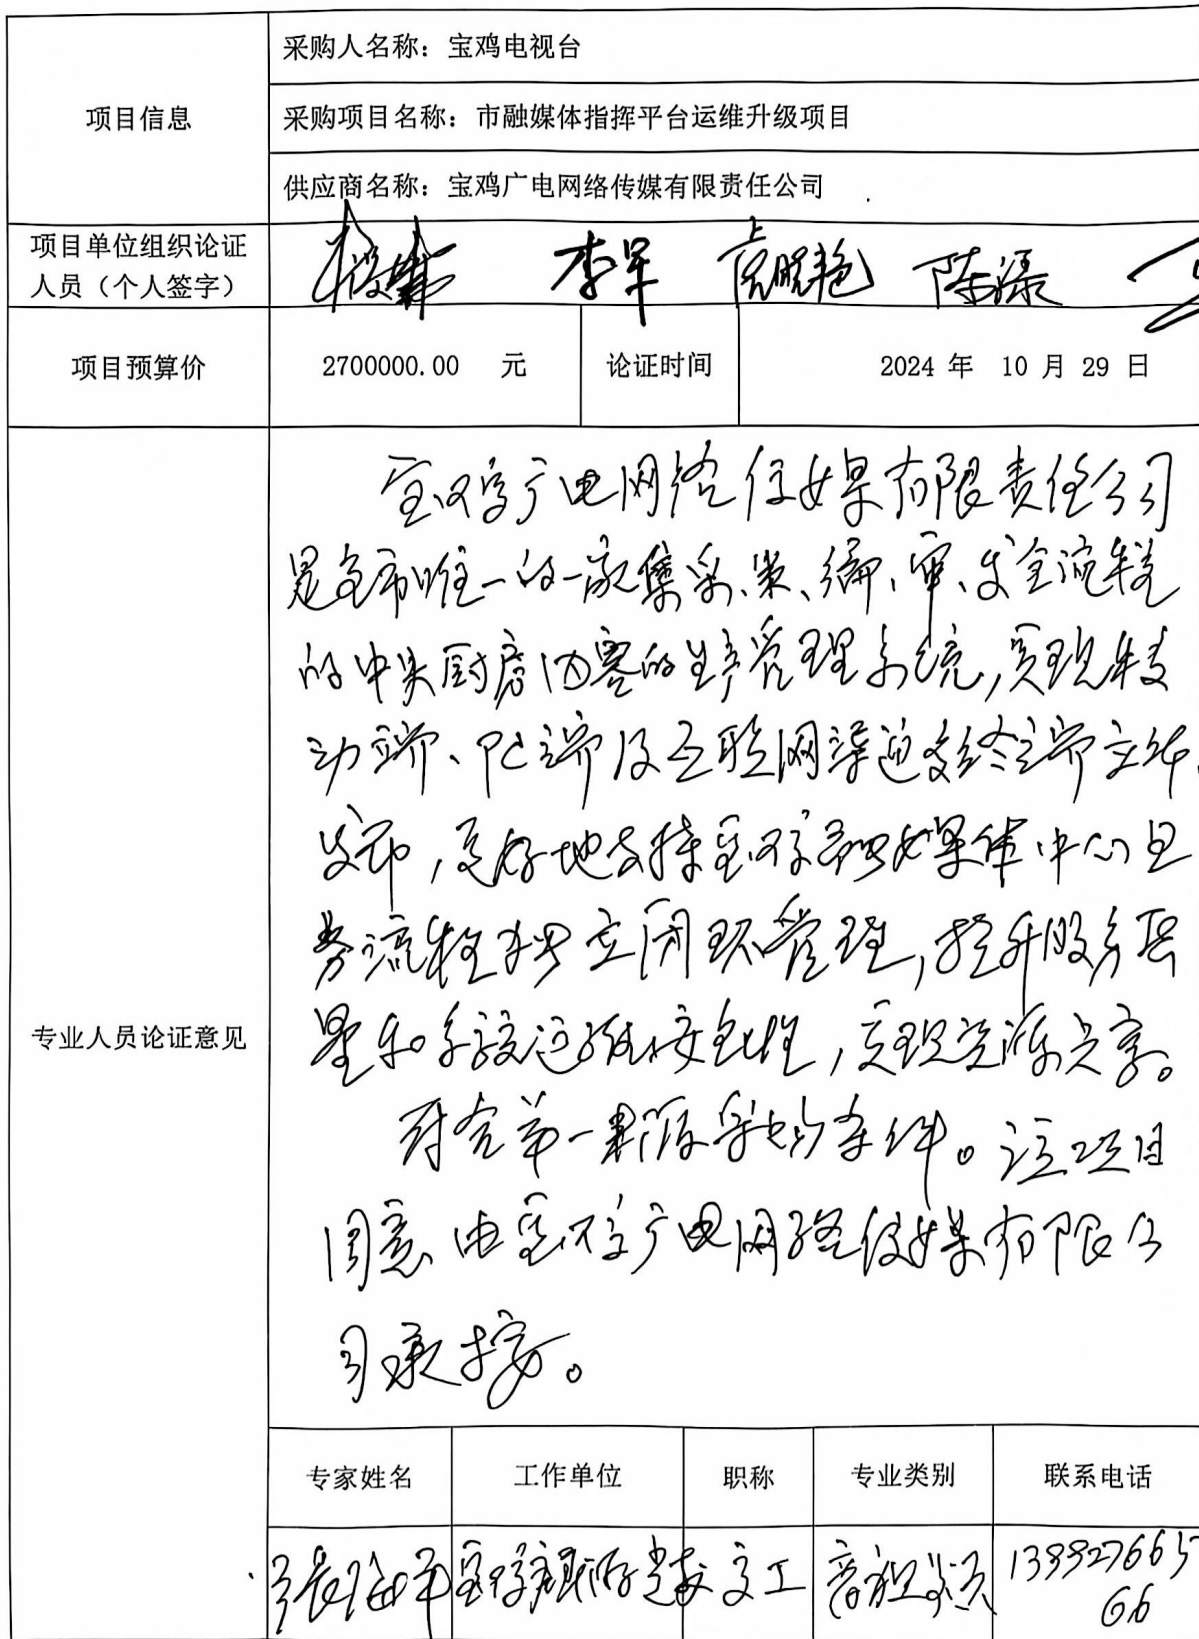 采购人名称：宝鸡电视台
项目信息
采购项目名称：市融媒体指挥平台运维升级项目
供应商名称：宝鸡广电网络传媒有限责任公司
项目单位组织论证
人员（个人签字）
李军
项目预算价 2700000.00 元 论证时间 2024 年 10 月 29 日
宝鸡广电网络传媒有限责任公司
是全市唯一的一家集采、编、审、发全流程
的中央厨房内容的生产管理系统，实现移
动端、PC端及互联网渠道多终端立体
发布，更好地支持宝鸡融媒体中心业
务流程独立闭环管理，提升服务质
量和系统运维安全性，实现资源共享。
专业人员论证意见
符合单一来源采购条件。该项目
同意由宝鸡广电网络传媒有限公
司承接。
专家姓名 工作单位 职称 专业类别 联系电话
高工